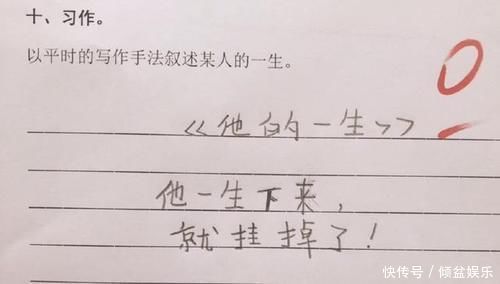 十、习作。
以平时的写作手法叙述某人的一生。
0
《他的一生》
他一生下来，
就挂掉了！
快传号／倾盆娱乐